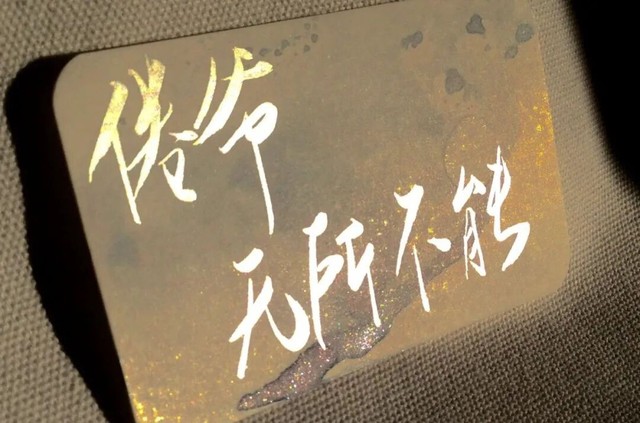 倦爷
无所不能